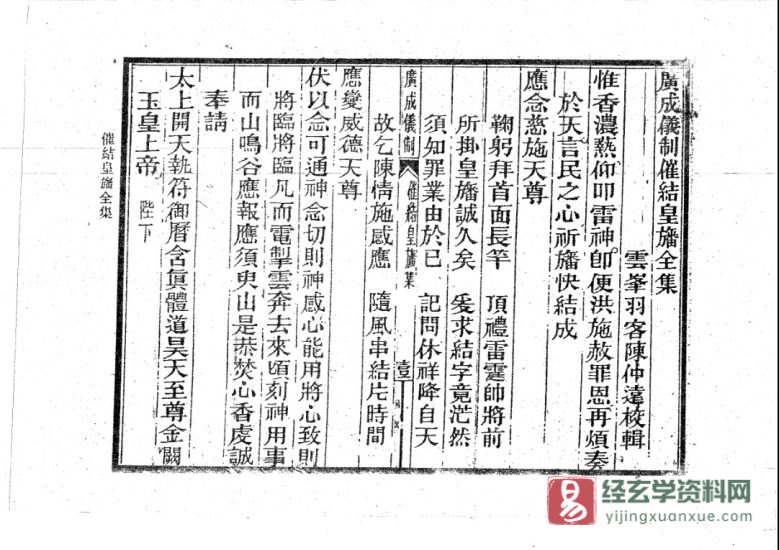 廣成儀制催結皇旛全集
雲峯羽客陳仲遠校輯
惟香濃爇仰叩雷神卽便洪施赦罪恩再煩奏
於天言民之心祈旛快結成
應念慈施天尊
鞠躬拜首面長竿 頂禮雷霆帥將前
所掛皇旛誠久矣 爰求結字竟茫然
須知罪業由於己 記問休祥降自天
廣成儀制 催結皇旛集 壹
故乞陳情施感應 隨風串結片時間
應變威德天尊
伏以念可通神念切則神感心能用將心致則
將臨將臨凡而電掣雲奔去來頃刻神用事
而山鳴谷應報應須臾山是恭焚心香虔誠
奉請
太上開天執符御曆含眞體道昊天至尊金闕
玉皇上帝 陛下
催結皇旛全集
易 经玄学资料网
yijingxuanxue.com